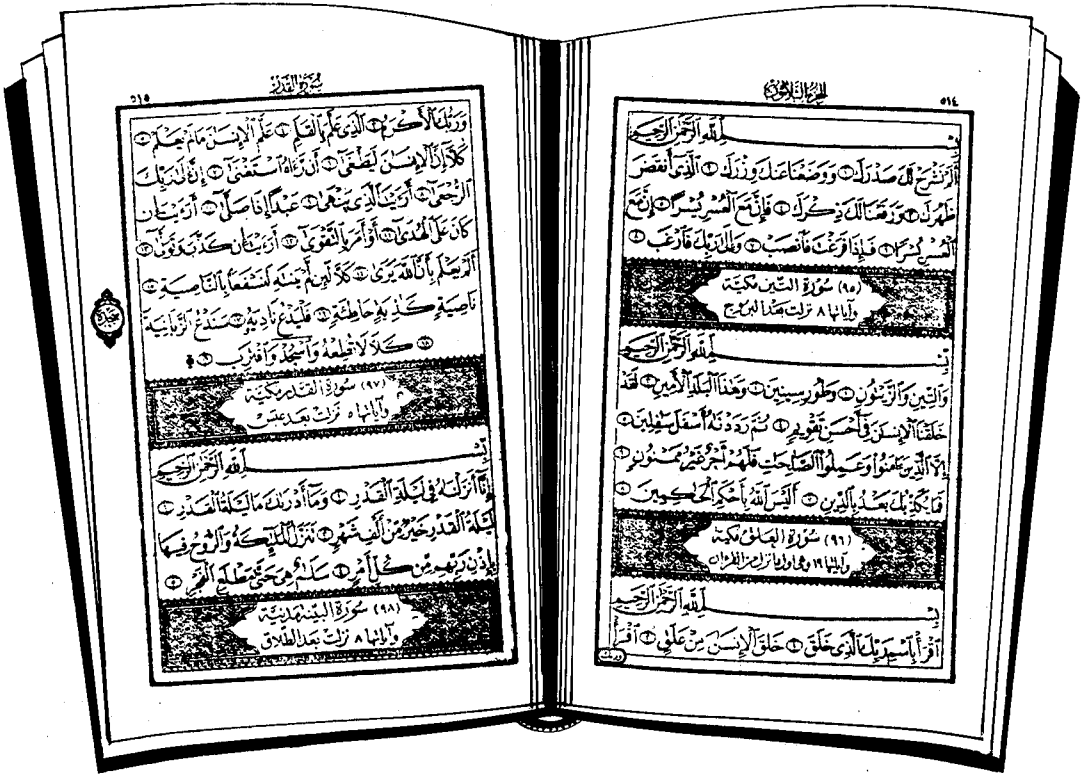 الجزء الثلاثون
٥١٤
بِسْمِ ٱللَّهِ ٱلرَّحْمَٰنِ ٱلرَّحِيمِ
أَلَمْ نَشْرَحْ لَكَ صَدْرَكَ ١ وَوَضَعْنَا عَنكَ وِزْرَكَ ٢ ٱلَّذِىٓ أَنقَضَ
ظَهْرَكَ ٣ وَرَفَعْنَا لَكَ ذِكْرَكَ ٤ فَإِنَّ مَعَ ٱلْعُسْرِ يُسْرًا ٥ إِنَّ مَعَ
ٱلْعُسْرِ يُسْرًا ٦ فَإِذَا فَرَغْتَ فَٱنصَبْ ٧ وَإِلَىٰ رَبِّكَ فَٱرْغَب ٨
(٩٥) سُورَةُ التِّينِ مَكِّيَّة
وَآيَاتُهَا ٨ نَزَلَتْ بَعْدَ البُرُوجِ
بِسْمِ ٱللَّهِ ٱلرَّحْمَٰنِ ٱلرَّحِيمِ
وَٱلتِّينِ وَٱلزَّيْتُونِ ١ وَطُورِ سِينِينَ ٢ وَهَٰذَا ٱلْبَلَدِ ٱلْأَمِينِ ٣ لَقَدْ
خَلَقْنَا ٱلْإِنسَٰنَ فِىٓ أَحْسَنِ تَقْوِيمٍ ٤ ثُمَّ رَدَدْنَٰهُ أَسْفَلَ سَٰفِلِينَ ٥
إِلَّا ٱلَّذِينَ ءَامَنُوا۟ وَعَمِلُوا۟ ٱلصَّٰلِحَٰتِ فَلَهُمْ أَجْرٌ غَيْرُ مَمْنُونٍ ٦
فَمَا يُكَذِّبُكَ بَعْدُ بِٱلدِّينِ ٧ أَلَيْسَ ٱللَّهُ بِأَحْكَمِ ٱلْحَٰكِمِينَ ٨
(٩٦) سُورَةُ العَلَقِ مَكِّيَّة
وَآيَاتُهَا ١٩ وَهِىَ أَوَّلُ مَا نَزَلَ مِنَ القُرْآنِ
بِسْمِ ٱللَّهِ ٱلرَّحْمَٰنِ ٱلرَّحِيمِ
ٱقْرَأْ بِٱسْمِ رَبِّكَ ٱلَّذِى خَلَقَ ١ خَلَقَ ٱلْإِنسَٰنَ مِنْ عَلَقٍ ٢ ٱقْرَأْ
وربك
سُورَةُ القَدْرِ
٥١٥
وَرَبُّكَ ٱلْأَكْرَمُ ٣ ٱلَّذِى عَلَّمَ بِٱلْقَلَمِ ٤ عَلَّمَ ٱلْإِنسَٰنَ مَا لَمْ يَعْلَمْ ٥
كَلَّآ إِنَّ ٱلْإِنسَٰنَ لَيَطْغَىٰٓ ٦ أَن رَّءَاهُ ٱسْتَغْنَىٰٓ ٧ إِنَّ إِلَىٰ رَبِّكَ
ٱلرُّجْعَىٰٓ ٨ أَرَءَيْتَ ٱلَّذِى يَنْهَىٰ ٩ عَبْدًا إِذَا صَلَّىٰٓ ١٠ أَرَءَيْتَ إِن
كَانَ عَلَى ٱلْهُدَىٰٓ ١١ أَوْ أَمَرَ بِٱلتَّقْوَىٰٓ ١٢ أَرَءَيْتَ إِن كَذَّبَ وَتَوَلَّىٰٓ ١٣
أَلَمْ يَعْلَم بِأَنَّ ٱللَّهَ يَرَىٰ ١٤ كَلَّا لَئِن لَّمْ يَنتَهِ لَنَسْفَعًۢا بِٱلنَّاصِيَةِ ١٥
نَاصِيَةٍ كَٰذِبَةٍ خَاطِئَةٍ ١٦ فَلْيَدْعُ نَادِيَهُۥ ١٧ سَنَدْعُ ٱلزَّبَانِيَةَ
١٨ كَلَّا لَا تُطِعْهُ وَٱسْجُدْ وَٱقْتَرِب ١٩
سجدة
(٩٧) سُورَةُ القَدْرِ مَكِّيَّة
وَآيَاتُهَا ٥ نَزَلَتْ بَعْدَ عَبَسَ
بِسْمِ ٱللَّهِ ٱلرَّحْمَٰنِ ٱلرَّحِيمِ
إِنَّآ أَنزَلْنَٰهُ فِى لَيْلَةِ ٱلْقَدْرِ ١ وَمَآ أَدْرَىٰكَ مَا لَيْلَةُ ٱلْقَدْرِ ٢
لَيْلَةُ ٱلْقَدْرِ خَيْرٌ مِّنْ أَلْفِ شَهْرٍ ٣ تَنَزَّلُ ٱلْمَلَٰٓئِكَةُ وَٱلرُّوحُ فِيهَا
بِإِذْنِ رَبِّهِم مِّن كُلِّ أَمْرٍ ٤ سَلَٰمٌ هِىَ حَتَّىٰ مَطْلَعِ ٱلْفَجْرِ ٥
(٩٨) سُورَةُ البَيِّنَةِ مَدَنِيَّة
وَآيَاتُهَا ٨ نَزَلَتْ بَعْدَ الطَّلَاقِ